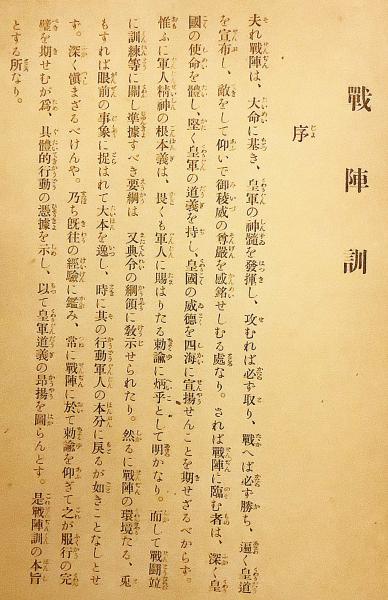 戰陣訓
序
夫れ戰陣は、大命に基き、皇軍の神髓を發揮し、攻むれば必ず取り、戰へば必ず勝ち、遍く皇道
を宣布し、敵をして仰いで御稜威の尊嚴を感銘せしむる處なり。されば戰陣に臨む者は、深く皇
國の使命を體し、堅く皇軍の道義を持し、皇國の威德を四海に宣揚せんことを期せざるべからず。
惟ふに軍人精神の根本義は、畏くも軍人に賜はりたる勅諭に炳乎として明かなり。而して戰鬪竝
に訓練等に關し準據すべき要綱は、又典令の綱領に敎示せられたり。然るに戰陣の環境たる、兎
もすれば眼前の事象に捉はれて大本を逸し、時に其の行動軍人の本分に戾るが如きことなしとせ
ず。深く愼まざるべけんや。乃ち旣往の經驗に鑑み、常に戰陣に於て勅諭を仰ぎて之が服行の完
璧を期せむが爲、具體的行動の憑據を示し、以て皇軍道義の昂揚を圖らんとす。是戰陣訓の本旨
とする所なり。